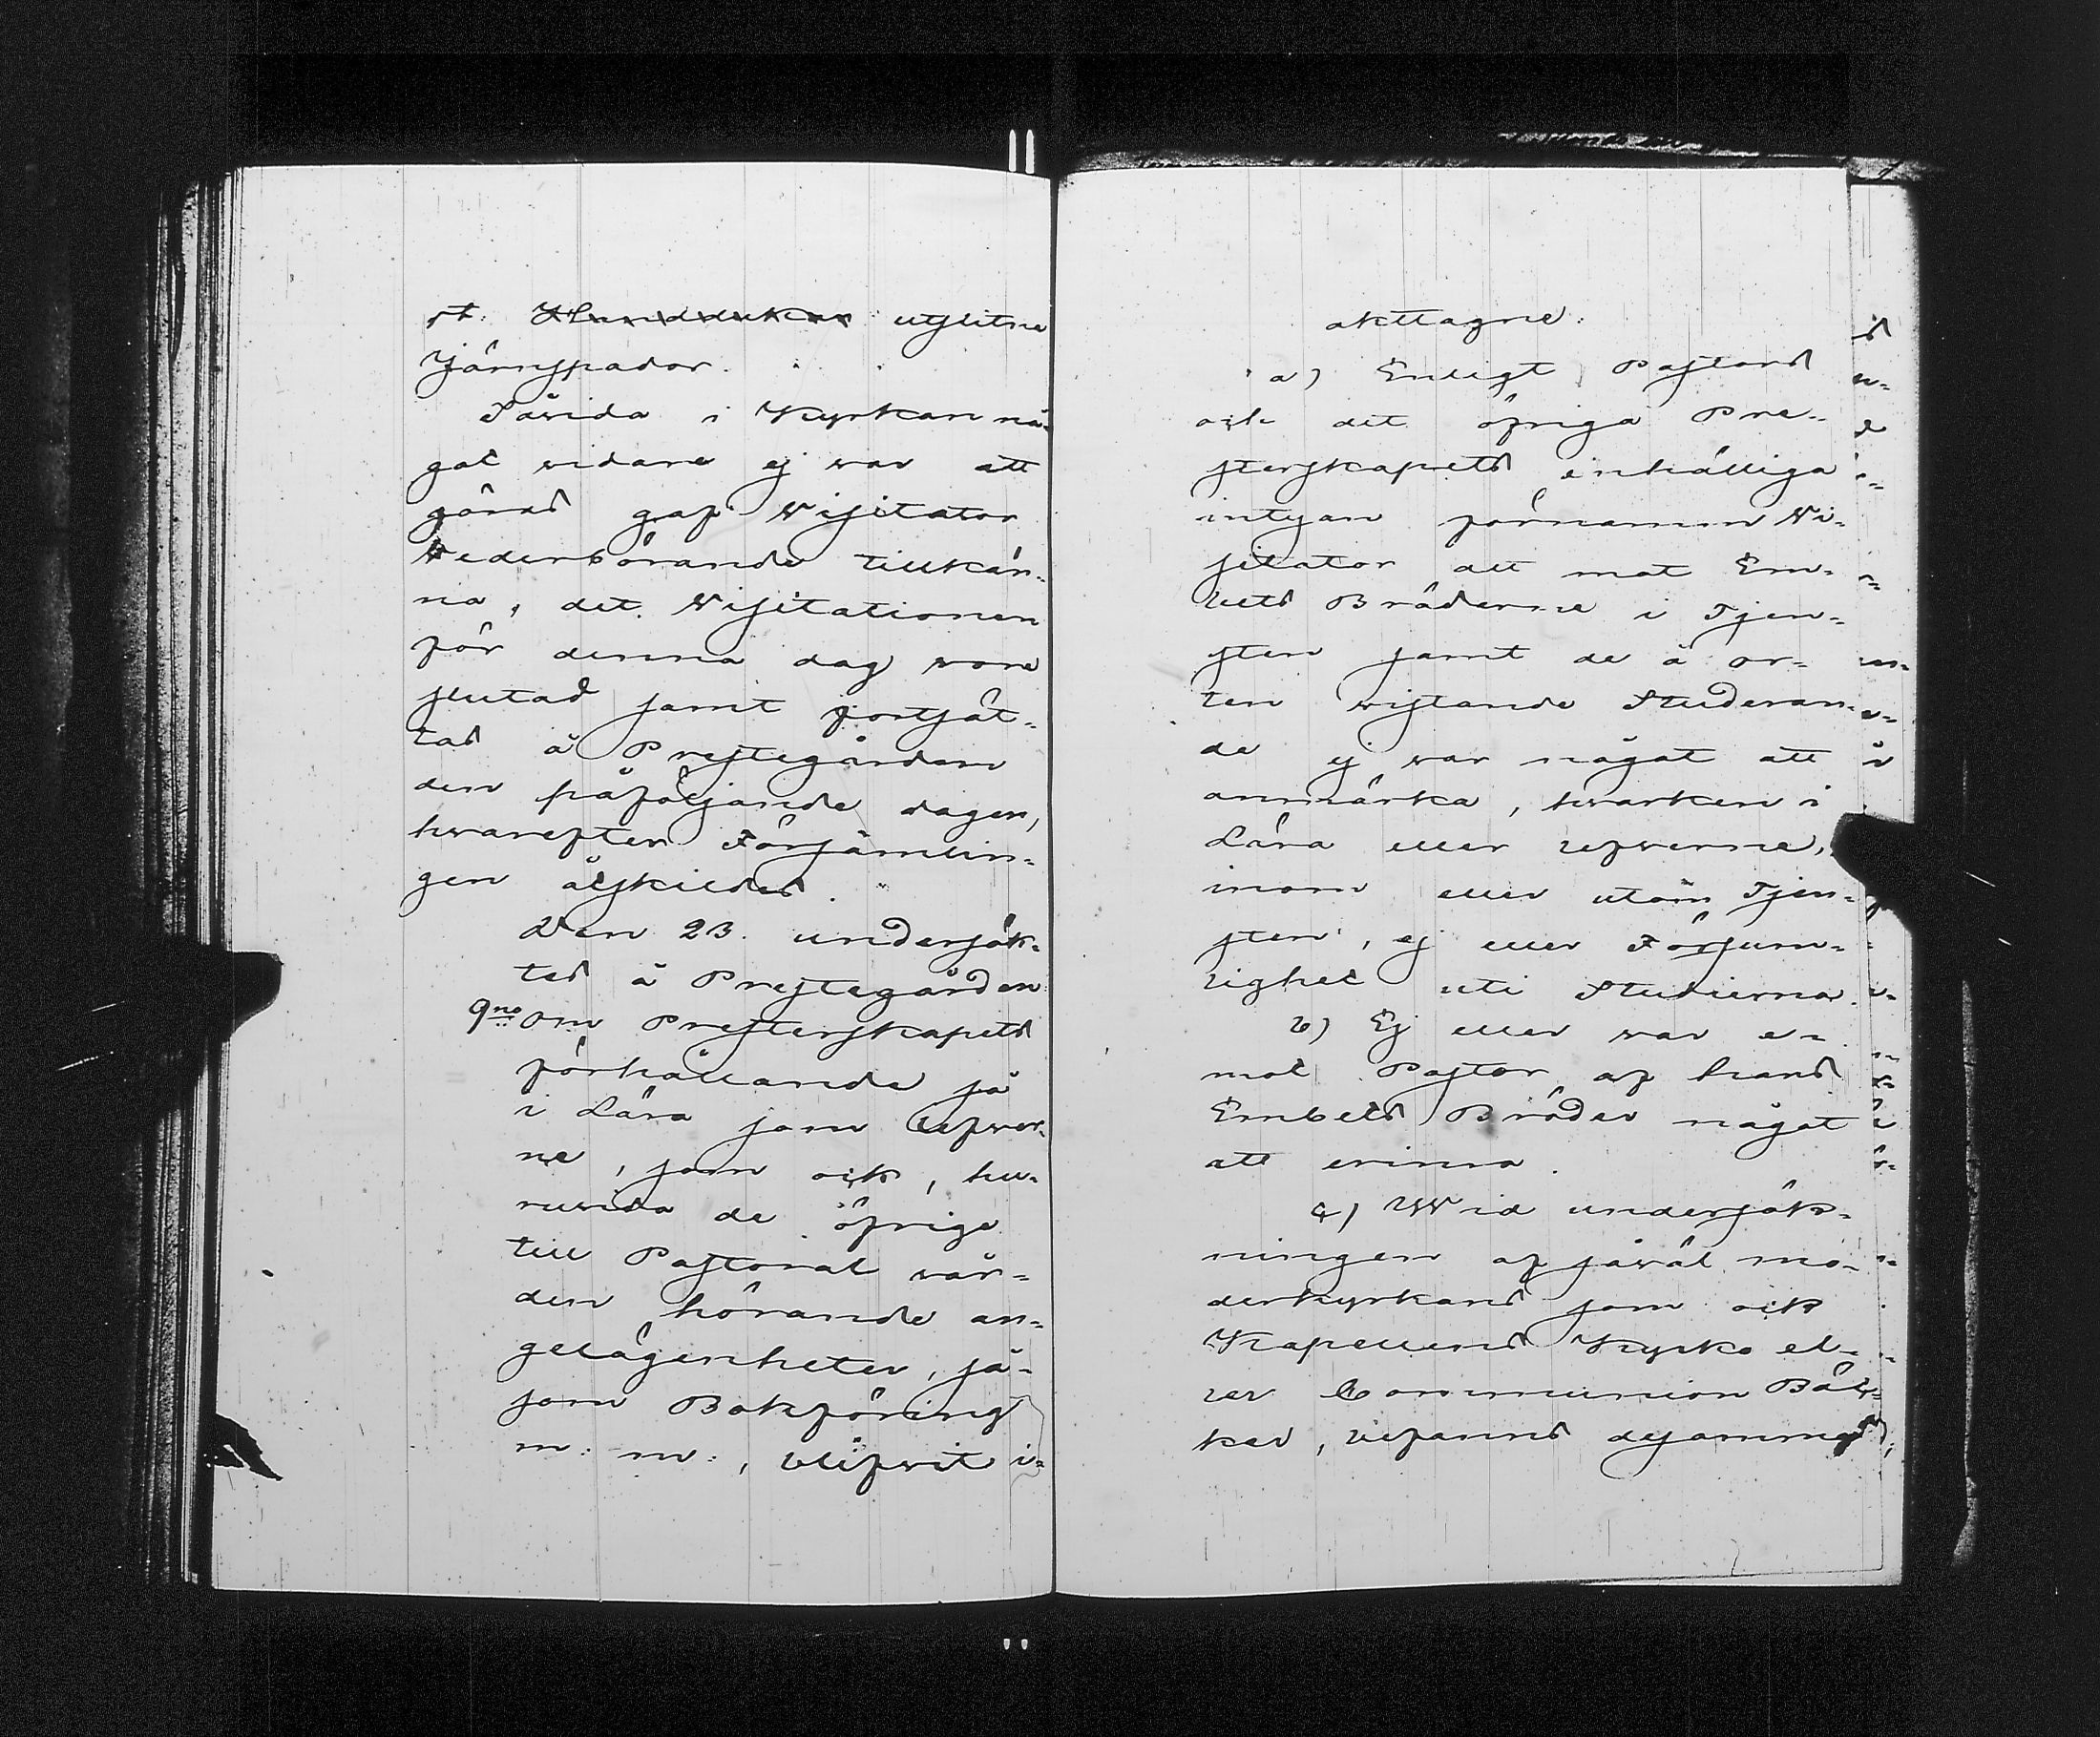 st. Handdukar utslitne
Järnspador.
Såvida i Kyrkan nå-
got vidare ej var att
göras gaf Visitator
Vederbörande tillkän-
na, det Visitationen
för denna dag vore
slutad samt fortsät-
tas å Prestegården
den påföljande dagen,
hvarefter Församlin-
gen åtskildes.
Den 23. undersök-
tes å Prestegården
9no om Presterskapets
förhållande så
i Lära som Lefver-
ne, som ock, hu-
ruvida de öfrige
till Pastoral vår-
den hörande an-
gelägenheter, så-
som Bokföring
m. m., blifvit i-
akttagne.
a) Enligt Pastors
och det öfriga Pre-
sterskapets enhälliga
intygan förnamm Vi-
sitator att mot Em-
bets Bröderne i Tjen-
sten samt de å or-
ten vistande Studeran-
de ej var något att
anmärka, hvarken i
Lära eller Lefverne,
inom eller utom Tjen-
sten, ej eller Försum-
lighet uti Studierna.
b) Ej eller var e-
mot Pastor af hans
Embets Bröder något
att erinra.
c) Wid undersök-
ningen af såväl mo-
derkyrkans som ock
Kapellens Kyrko el-
ler Communion Böc-
ker, befanns desamma,